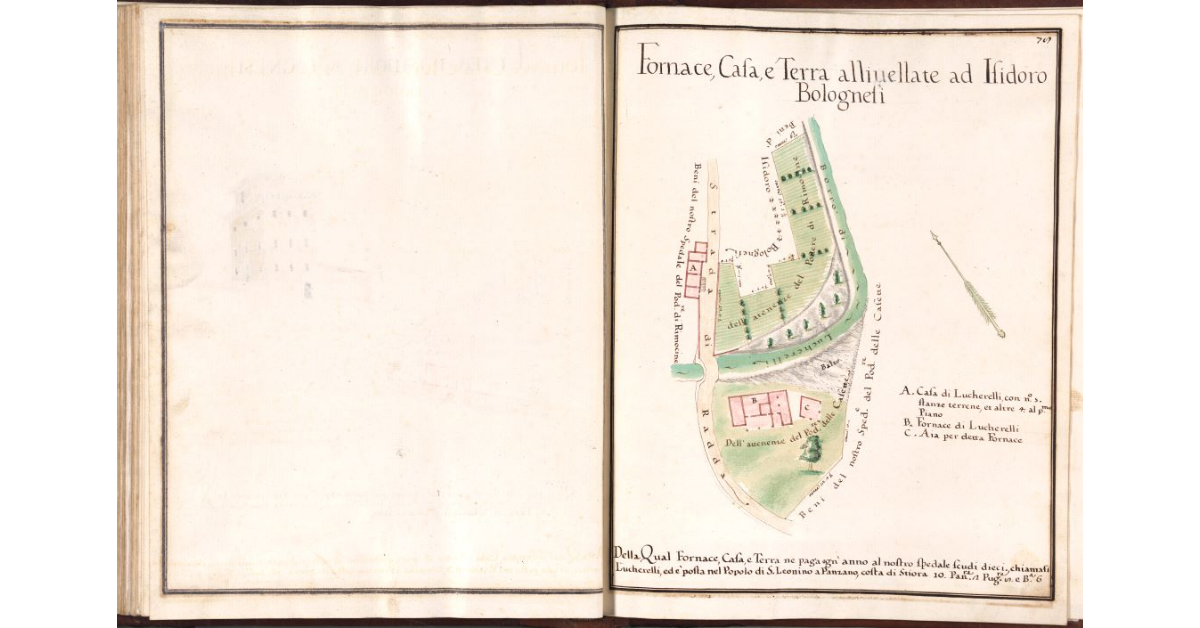 Fornace, Casa, e Terra alliuellate ad Isidoro
Bolognesi
Beni d'
Isidoro
Bolognesi
Beni del nostro Spedale del Pod.re di Rimocine
Strada di
Radda
Borro di
Lucherelli
dell'auenente del Podere di Rimocine
A
Balzo
B
C
Dell'auenente del Pod.e delle Cascine
Beni del nostro Sped.e del Pod.re delle Cascine
A. Casa di Lucherelli, con n.º 3.
stanze terrene, et altre 4. al p.mo
Piano
B. Fornace di Lucherelli
C. Aia per detta Fornace
Della Qual Fornace, Casa, e Terra ne paga ogn'anno al nostro spedale scudi dieci, chiamasi
Lucherelli, ed e' posta nel Popolo di S. Leonino a Panzano, costa di Stiora 10. Pan.ra e B.a 6